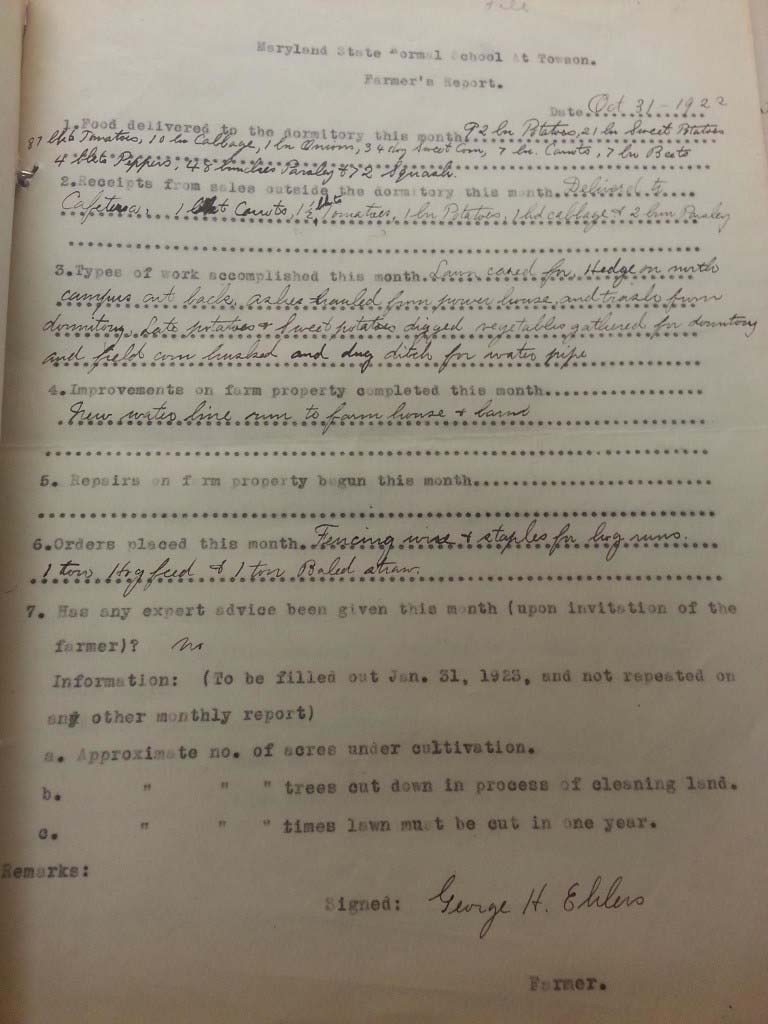 File
Maryland State Normal School At Towson.
Farmer's Report.
Date Oct 31-1922
1.Food delivered to the dormitory this month 92 bu Potatoes, 21 bu Sweet Potatoes
87 bkts Tomatoes, 10 bu Cabbage, 1 bu Onions, 34 doz Sweet Corn, 7 bu. Carrots, 7 bu Beets
4 bkts Peppers, 48 bunches Parsley & 72 Squash.
2.Receipts from sales outside the dormitory this month. Delivered to
Cafeteria. 1 bkt Carrots, 1½ bkts Tomatoes, 1 bu Potatoes, 1 hd cabbage & 2 bun Parsley
3.Types of work accomplished this month. Lawn cared for, Hedge on north
campus cut back, ashes hauled from power house, and trash from
dormitory. Late potatoes & Sweet potatoes digged vegetables gathered for dormitory
and field corn husked and dug ditch for water pipe
4.Improvements on farm property completed this month
New water line run to farm house & barns
5. Repairs on f rm property begun this month
6.Orders placed this month. Fencing wire & staples for hog runs.
1 ton Hog feed & 1 ton Baled straw.
7. Has any expert advice been given this month (upon invitation of the
farmer)? no
Information: (To be filled out Jan. 31, 1923, and not repeated on
any other monthly report)
a. Approximate no. of acres under cultivation.
b. " " " trees cut down in process of cleaning land.
c. " " " times lawn must be cut in one year.
Remarks:
Signed: George H. Ehlers
Farmer.